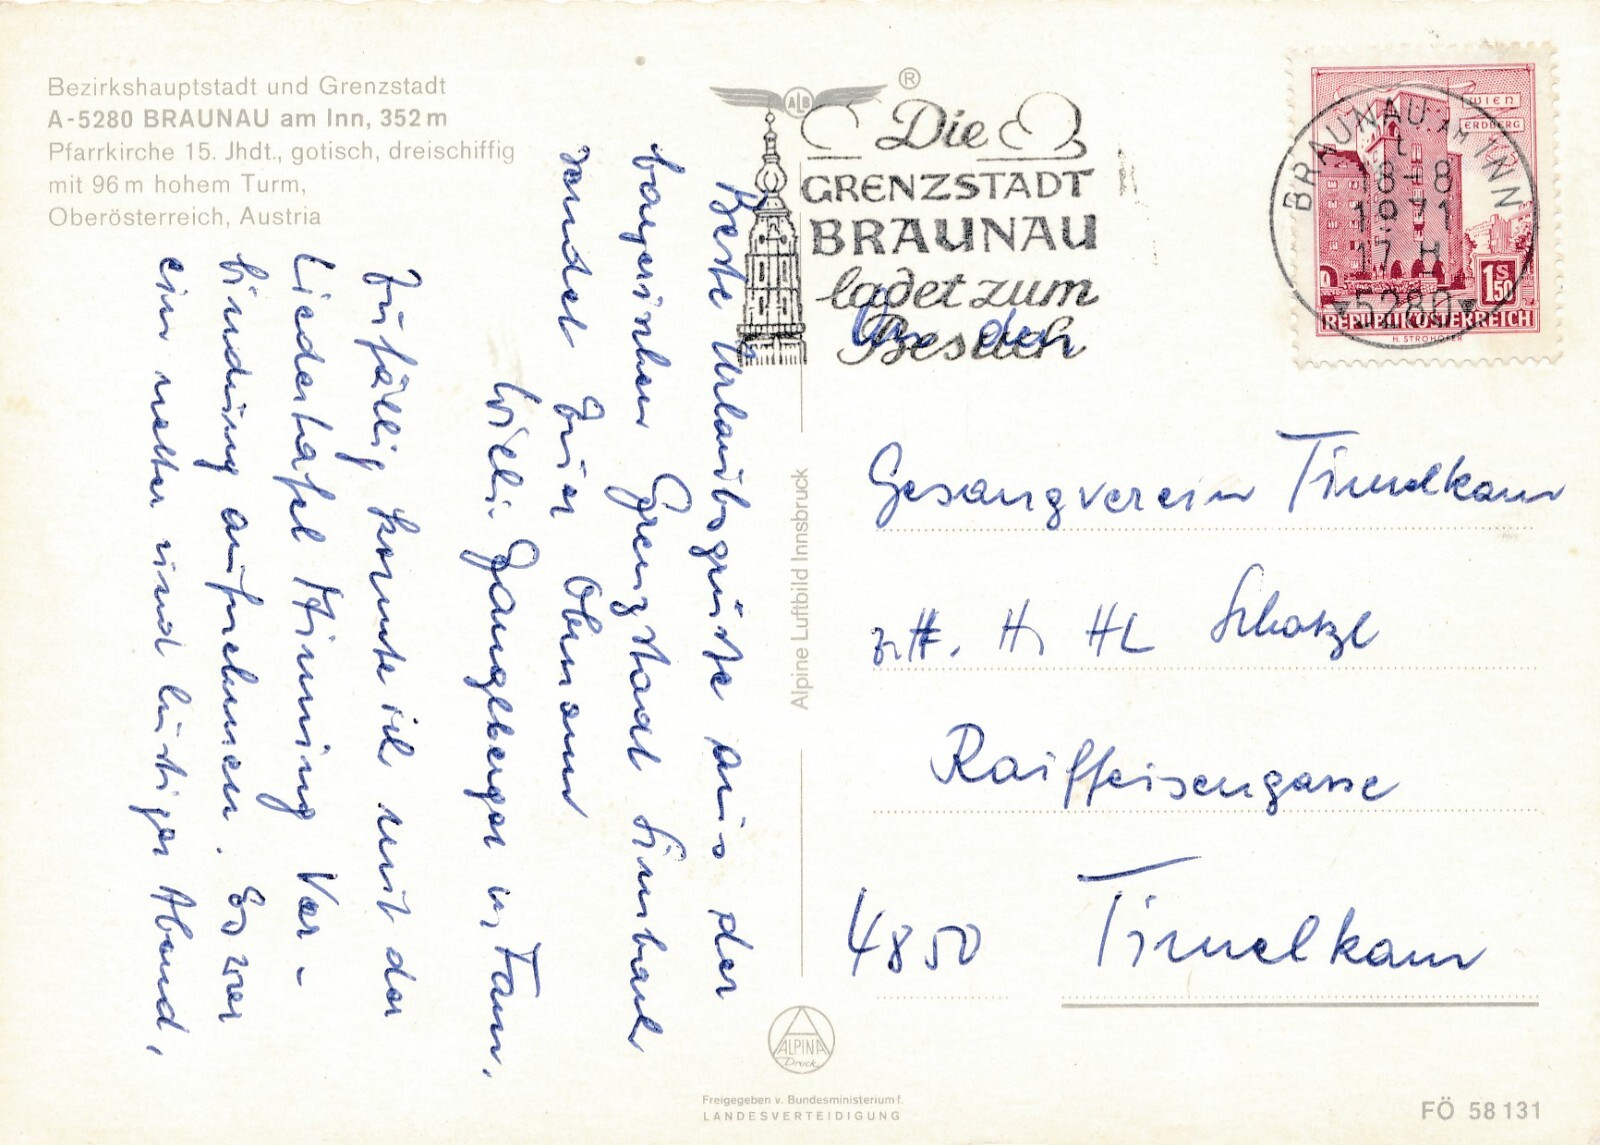 Bezirkshauptstadt und Grenzstadt
A-5280 BRAUNAU am Inn, 352 m
Pfarrkirche 15. Jhdt., gotisch, dreischiffig
mit 96 m hohem Turm,
Oberösterreich, Austria
ALB
®
Die
GRENZSTADT
BRAUNAU
ladet zum
Besuch
BRAUNAU AM INN
18-8
1971
17 H
5280
WIEN
ERDBERG
1 S 50
REPUBLIK ÖSTERREICH
H. STROHOFER
Beste Urlaubsgrüße aus der
bayerischen Grenzstadt Simbach
sendet Euer Obmann
Willi Gangberger u. Fam.
Zufällig konnte ich mit der
Liedertafel Mining Ver-
bindung aufnehmen. Es war
ein netter und lustiger Abend.
An den
Gesangverein Timelkam
z. H. H. HL Schatzl
Raiffeisengasse
4850 Timelkam
Alpine Luftbild Innsbruck
ALPINA
Druck
Freigegeben v. Bundesministerium f.
LANDESVERTEIDIGUNG
FÖ 58 131